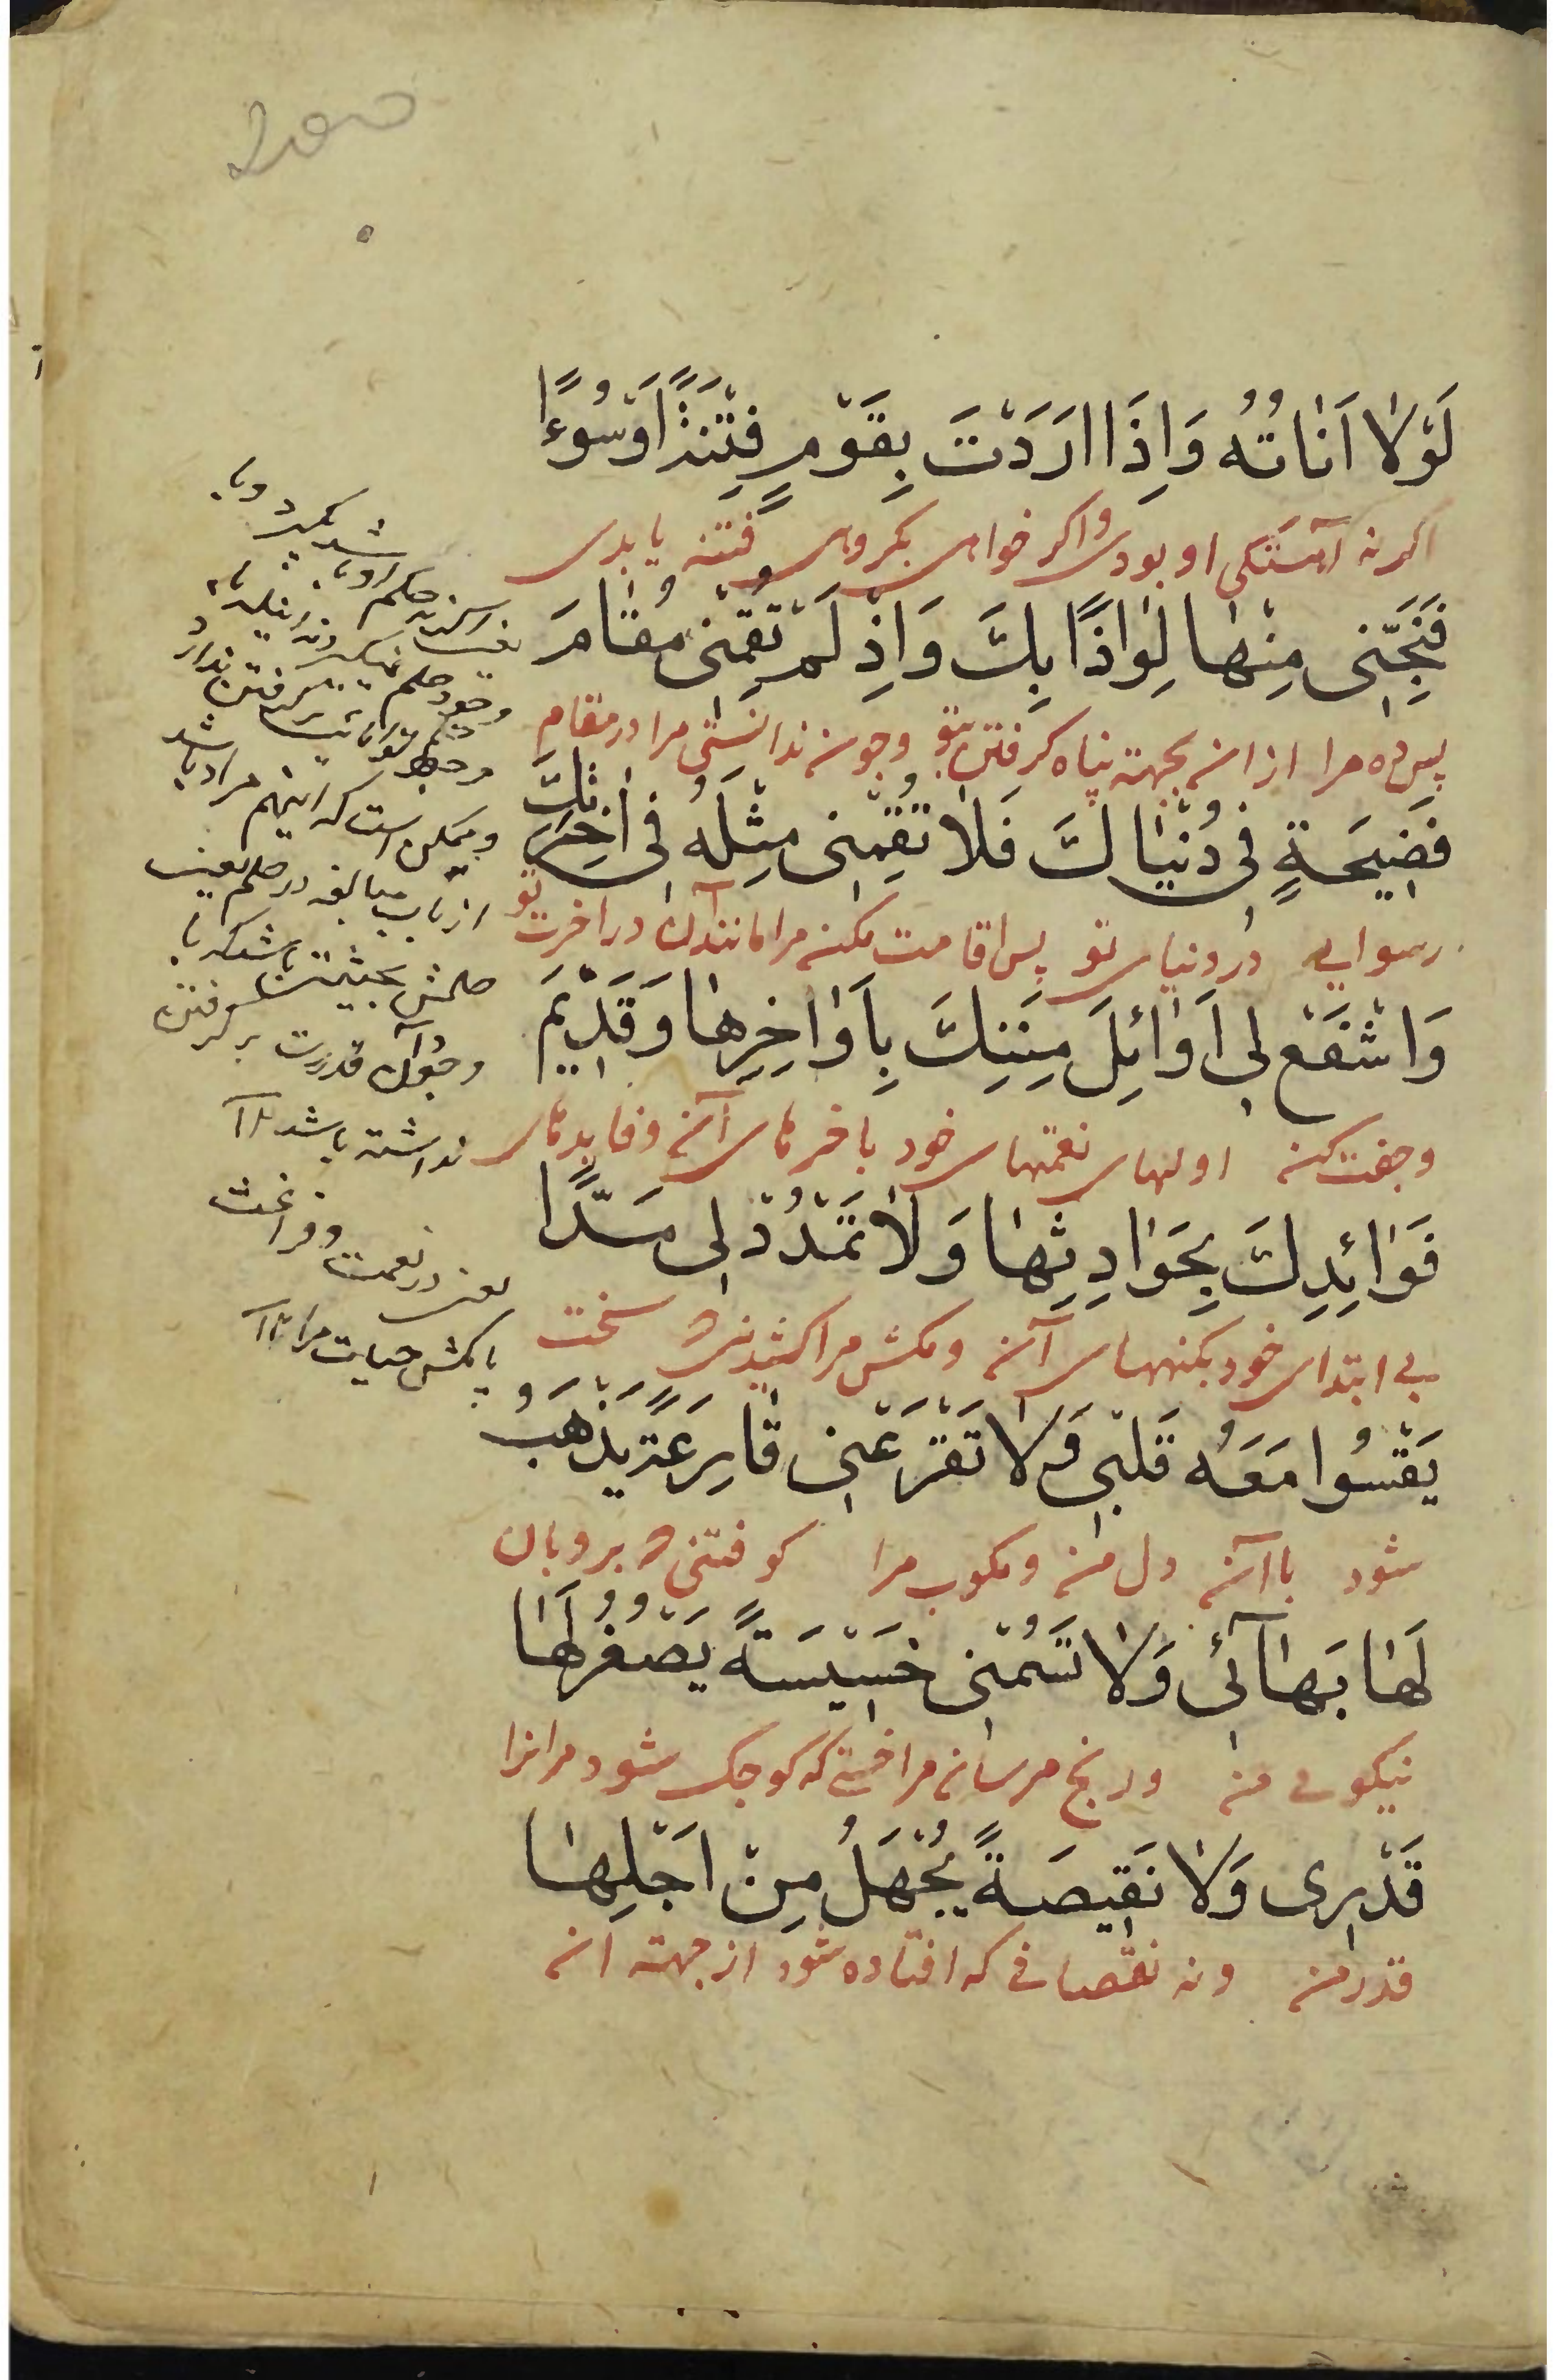 لَوْلَا اَنَاتُهُ وَاِذَا اَرَدْتَ بِقَوْمٍ فِتْنَةً اَوْ سُوءًا
اگر نه آهستگی او بودی و اگر خواهی بگروهی فتنه یا بدی
فَنَجِّنِی مِنْهَا لِوَاذًا بِكَ وَاِذْ لَمْ تُقِمْنِی مُقَامَ
پس ده مرا از ان بجهته پناه گرفتن بتو و چون نداشتی مرا در مقام
فَضِیحَةٍ فِی دُنْیَاكَ فَلَا تُقِمْنِی مِثْلَهُ فِی اٰخِرَتِكَ
رسوایی در دنیای تو پس اقامت مکن مرا مانند آن در اخرت تو
وَاشْفَعْ لِی اَوَائِلَ مِنَنِكَ بِاَوَاخِرِهَا وَقَدِیمَ
وجفت کن اولهای نعمتهای خود باخرهای آن و فایدهای
فَوَائِدِكَ بِحَوَادِثِهَا وَلَا تَمْدُدْ لِی مَدًّا
بی ابتدای خود بکنههای آن و مکش مرا کشیدنی که سخت
یَقْسُوا مَعَهُ قَلْبِی وَلَا تَقْرَعْنِی قَارِعَةً یَذْهَبُ
شود با آن دل من و مکوب مرا کوفتنی که برود بان
لَهَا بَهَآئِی وَلَا تَسُمْنِی خَسِیسَةً یَصْغُرُ لَهَا
نیکویی من و رنج مرسان مرا خستی که کوچک شود مر انرا
قَدْرِی وَلَا نَقِیصَةً یُجْهَلُ مِنْ اَجْلِهَا
قدر من و نه نقصانی که افتاده شود از جهته ان
و ممکن است که اینهم مراد باشد
از باب مبالغه در حلم یعنی
حلمش بحیثیتی باشد که با
وجود آن قدرت بر گرفتن
نداشته باشد ۱۲
یعنی در نعمت و فراغت
یا مکش حیات مرا ۱۲